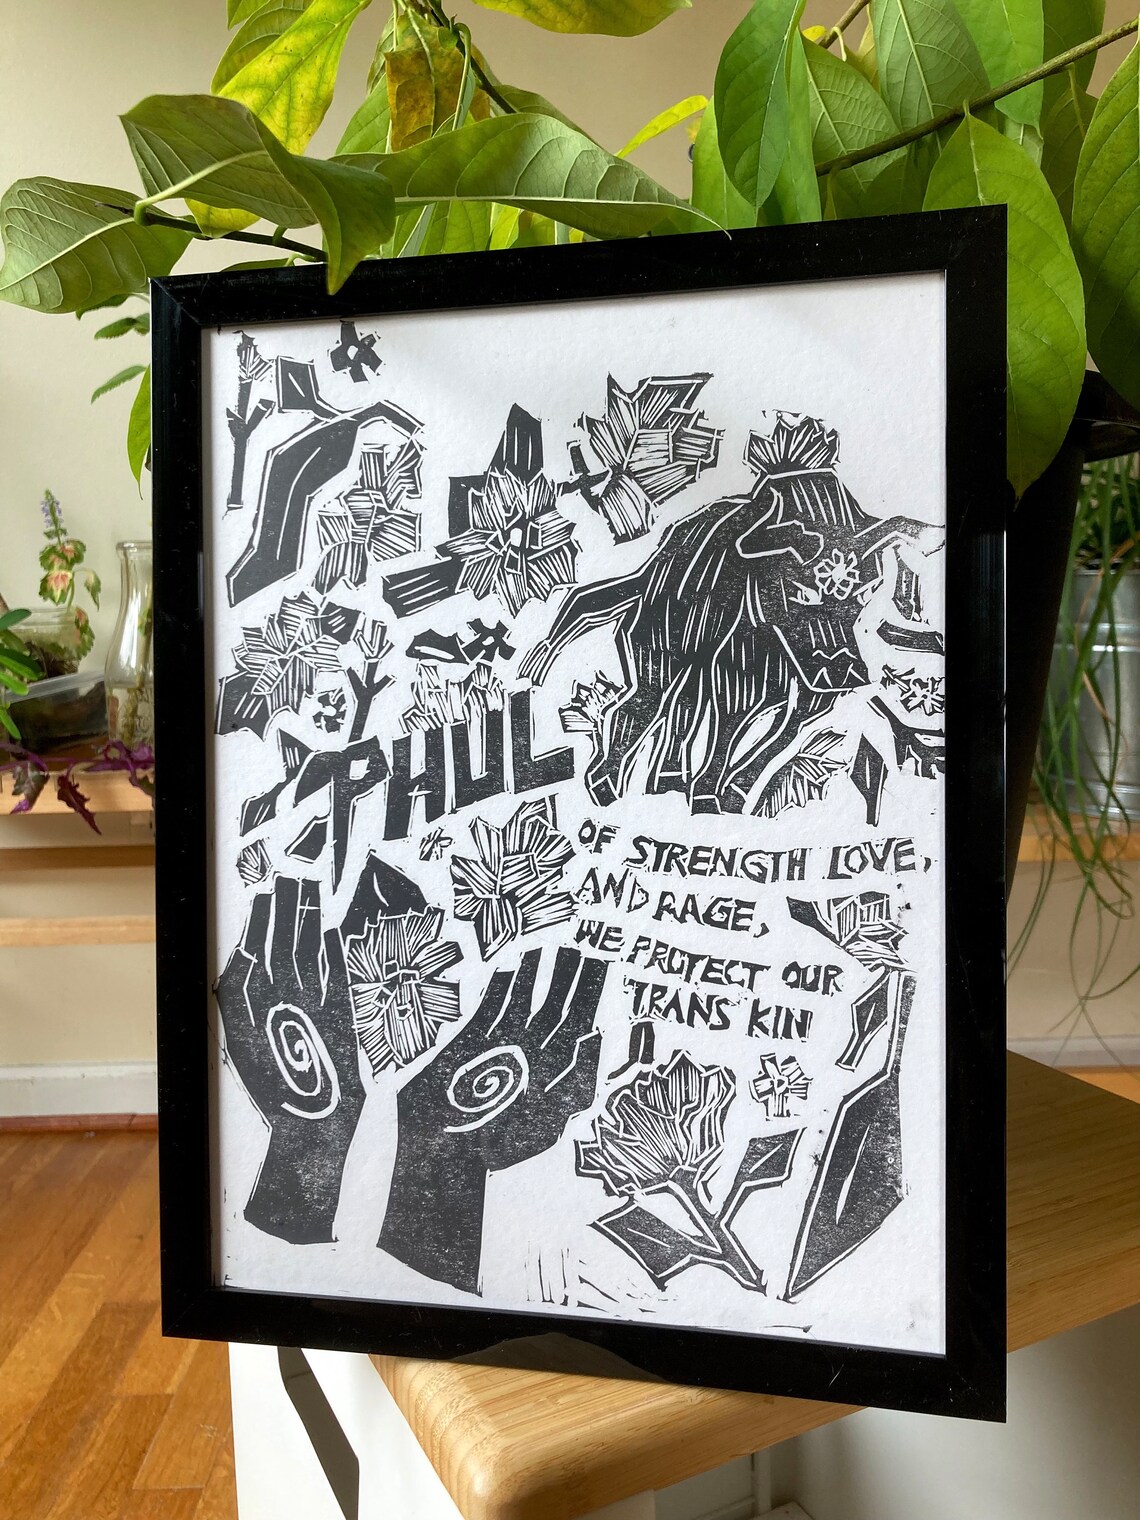 PHUL
OF STRENGTH LOVE,
AND RAGE,
WE PROTECT OUR
TRANS KIN